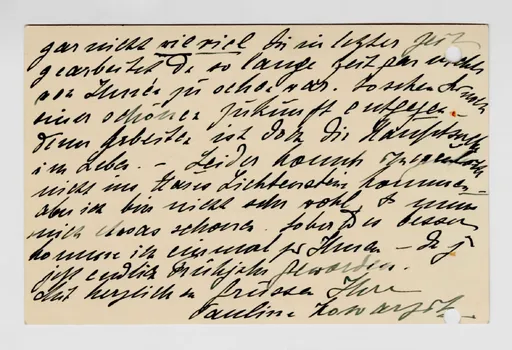 gar nicht wie viel Sie in letzter Zeit
gearbeitet da so lange Zeit gar nichts
von Ihnen zu sehen war. So sehen
einer schönen Zukunft entgegen –
denn Arbeiten ist doch die Hauptsache
im Leben. – Leider konnte ich
nicht ins Haus Lichtenstein kommen –
aber ich bin nicht sehr wohl & muss
mich etwas schonen. Sobald es besser
komme ich einmal zu Ihnen – da ja
jetzt endlich Frühjahr geworden.
Mit herzlichen Grüssen Ihre
Pauline